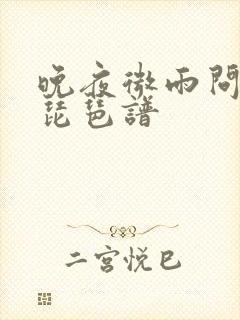 晚夜微雨問
琵琶譜
二宮悦巳